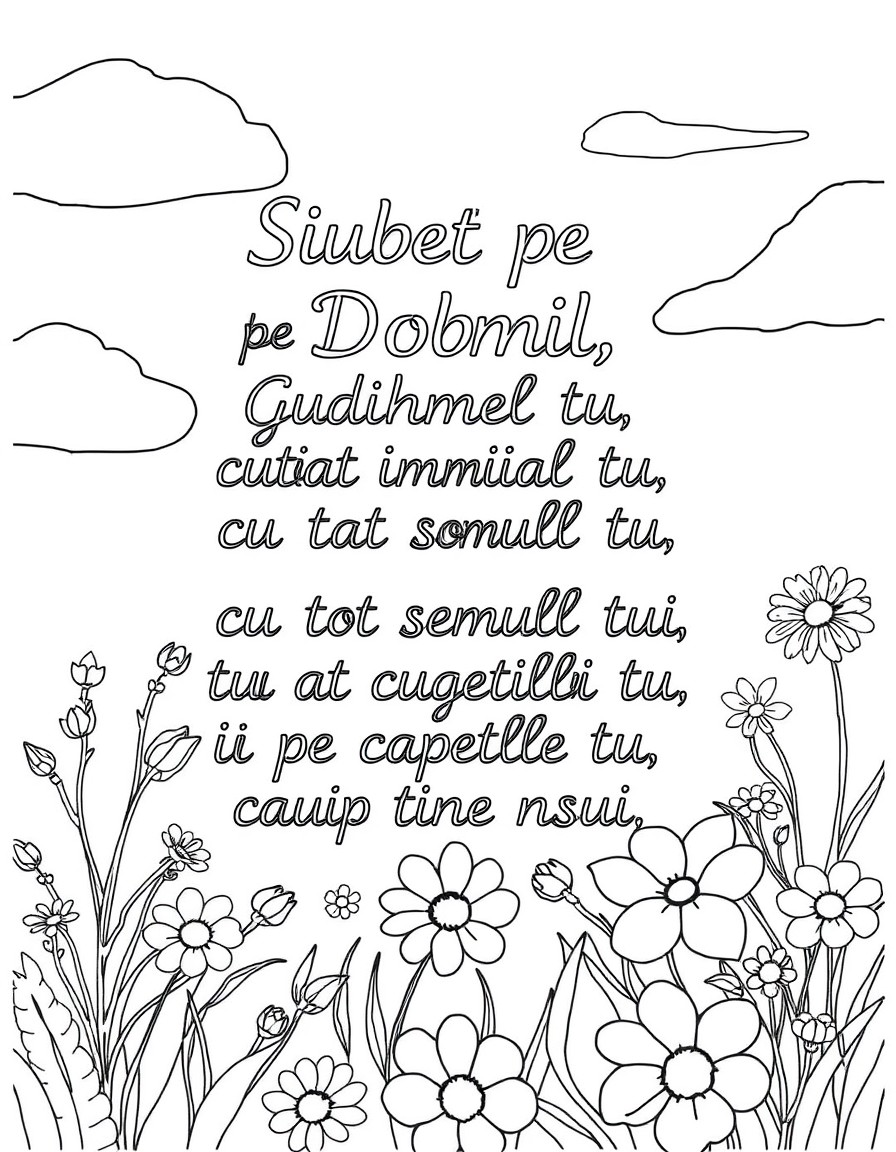 Siubet pe
pe Dobmil,
Gudihmel tu,
cutiat immiial tu,
cu tat semull tu,
cu tot semull tui,
tuu at cugetillii tu,
ii pe capetlle tu,
cauip tine nsui,